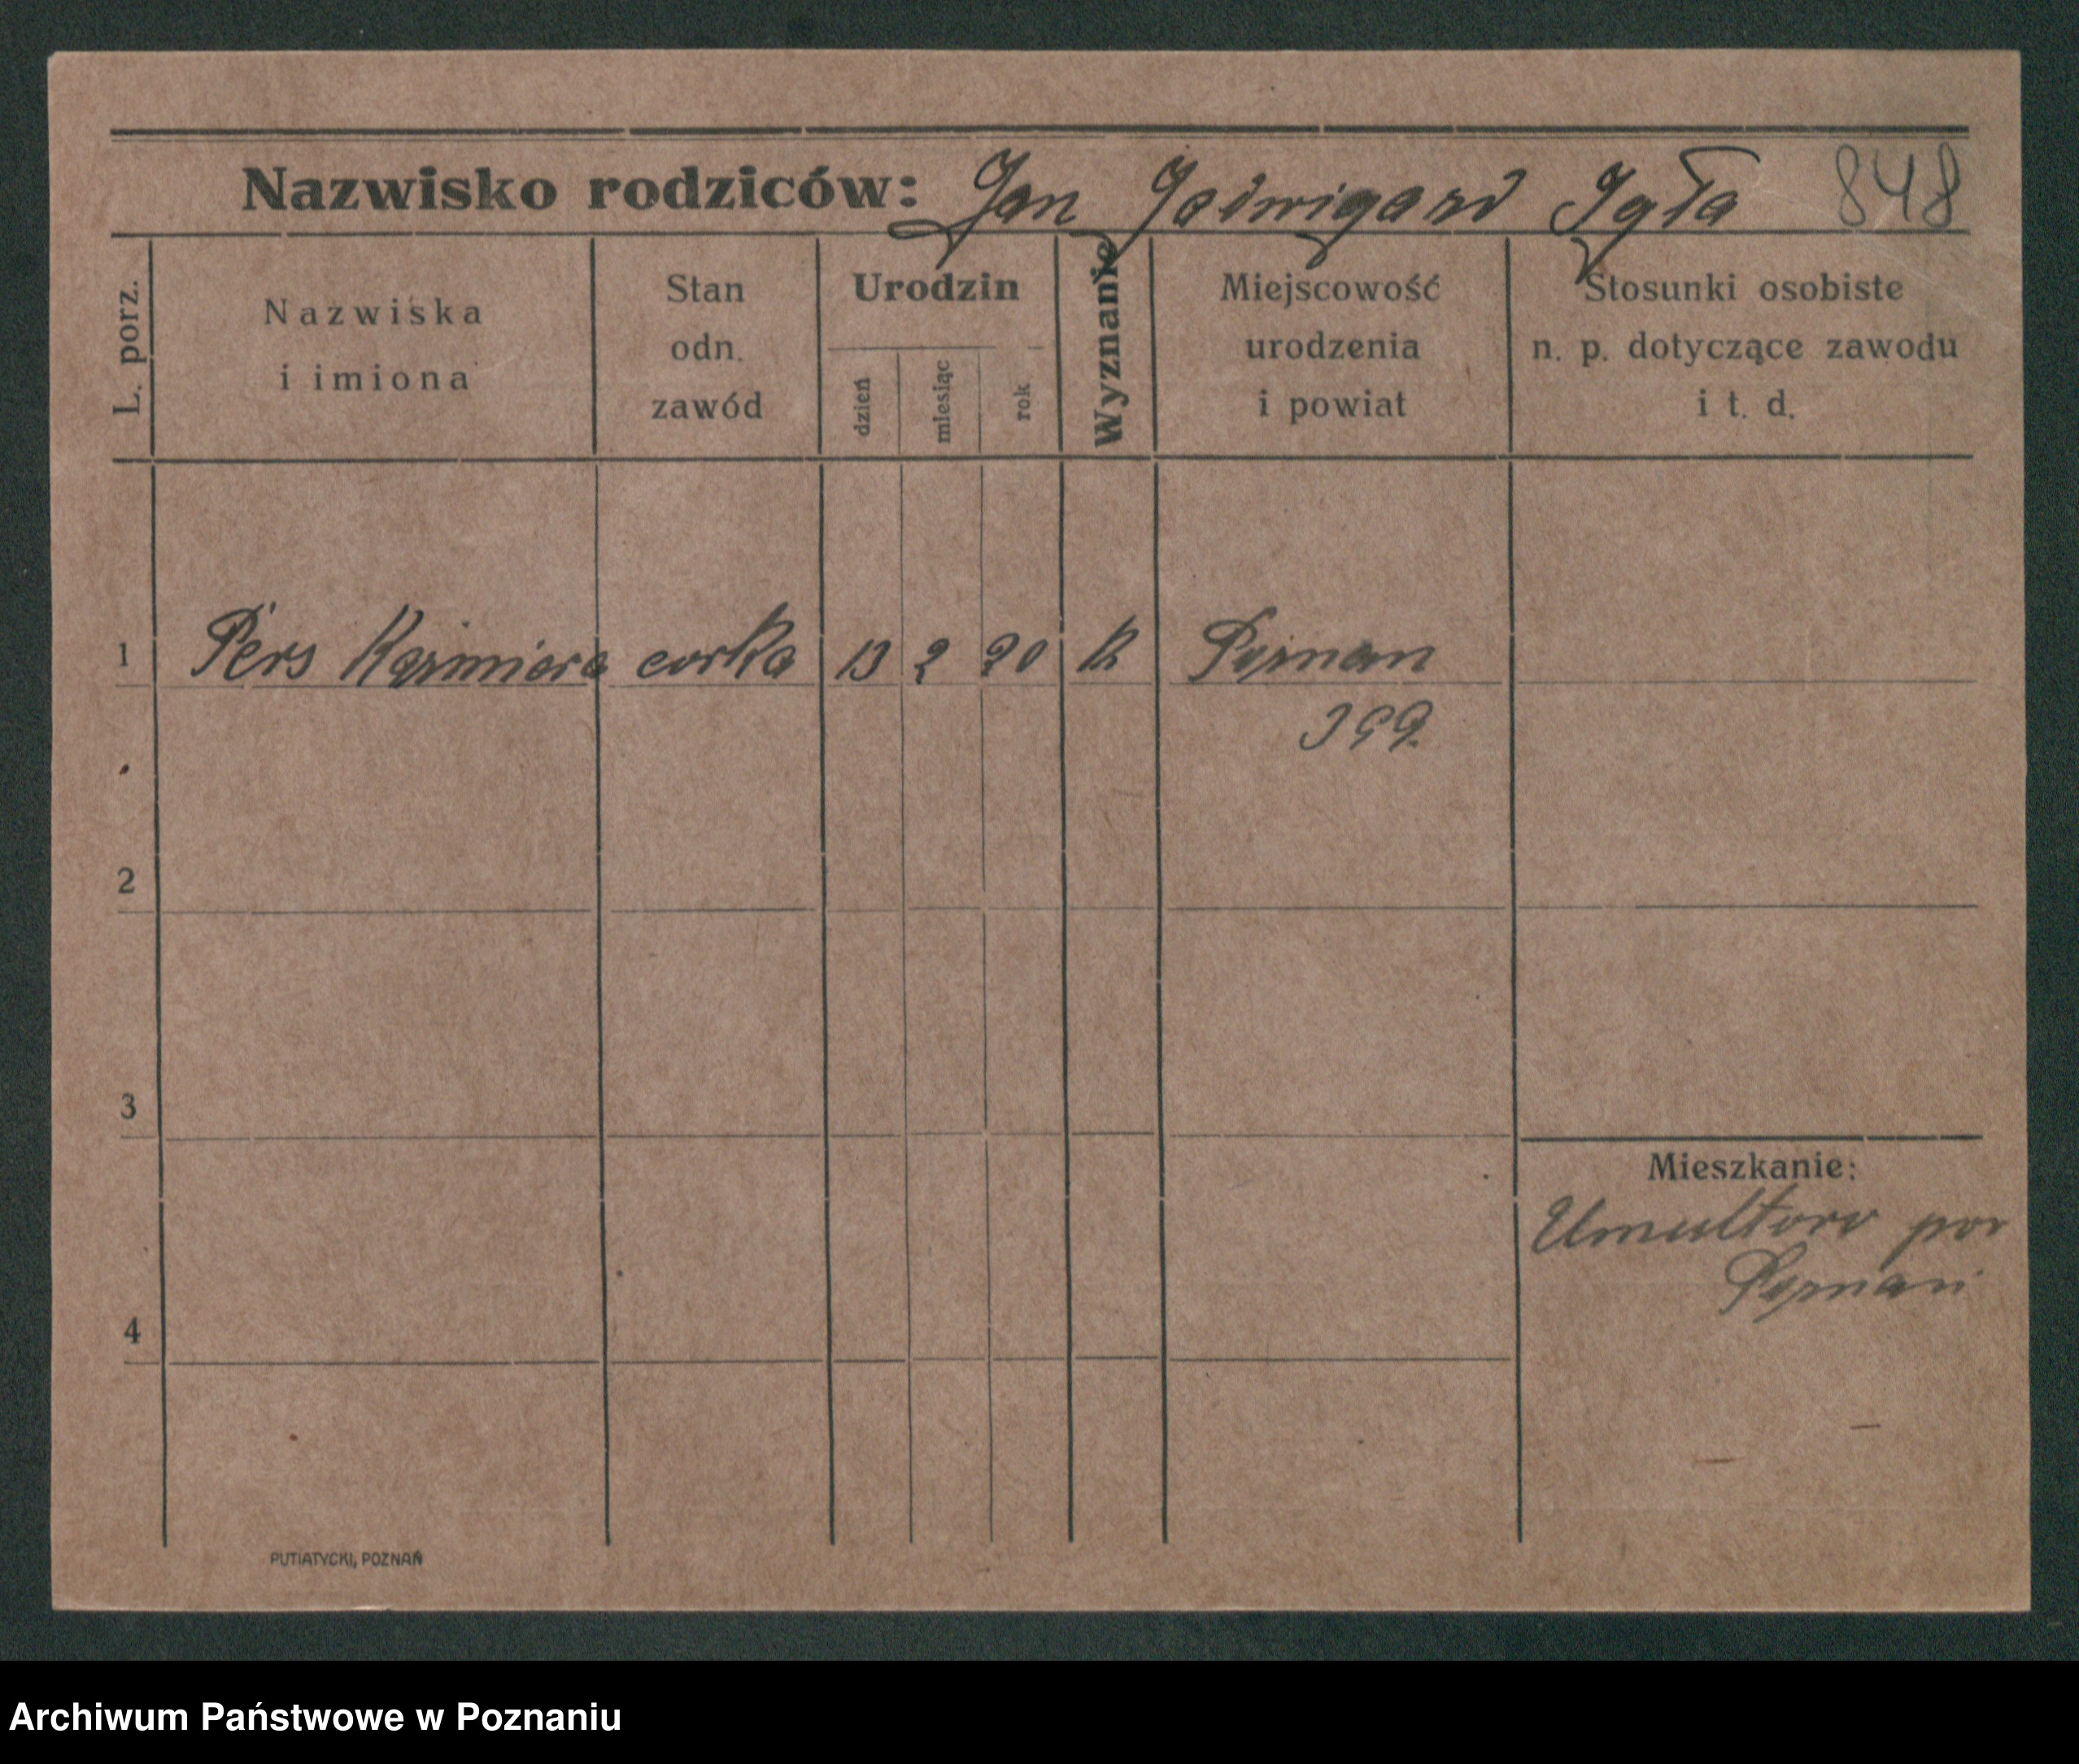 Nazwisko rodziców: Jan Jadwiga zd Igła 848
L. porz.
Nazwiska
i imiona
Stan
odn.
zawód
Urodzin
dzień
miesiąc
rok
Wyznanie
Miejscowość
urodzenia
i powiat
Stosunki osobiste
n. p. dotyczące zawodu
i t. d.
1 Pers Kazimiera corka 13 2 20 K Poznan
2
3
Mieszkanie:
Umultowo pow
Poznań
4
PUTIATYCKI, POZNAŃ
Archiwum Państwowe w Poznaniu